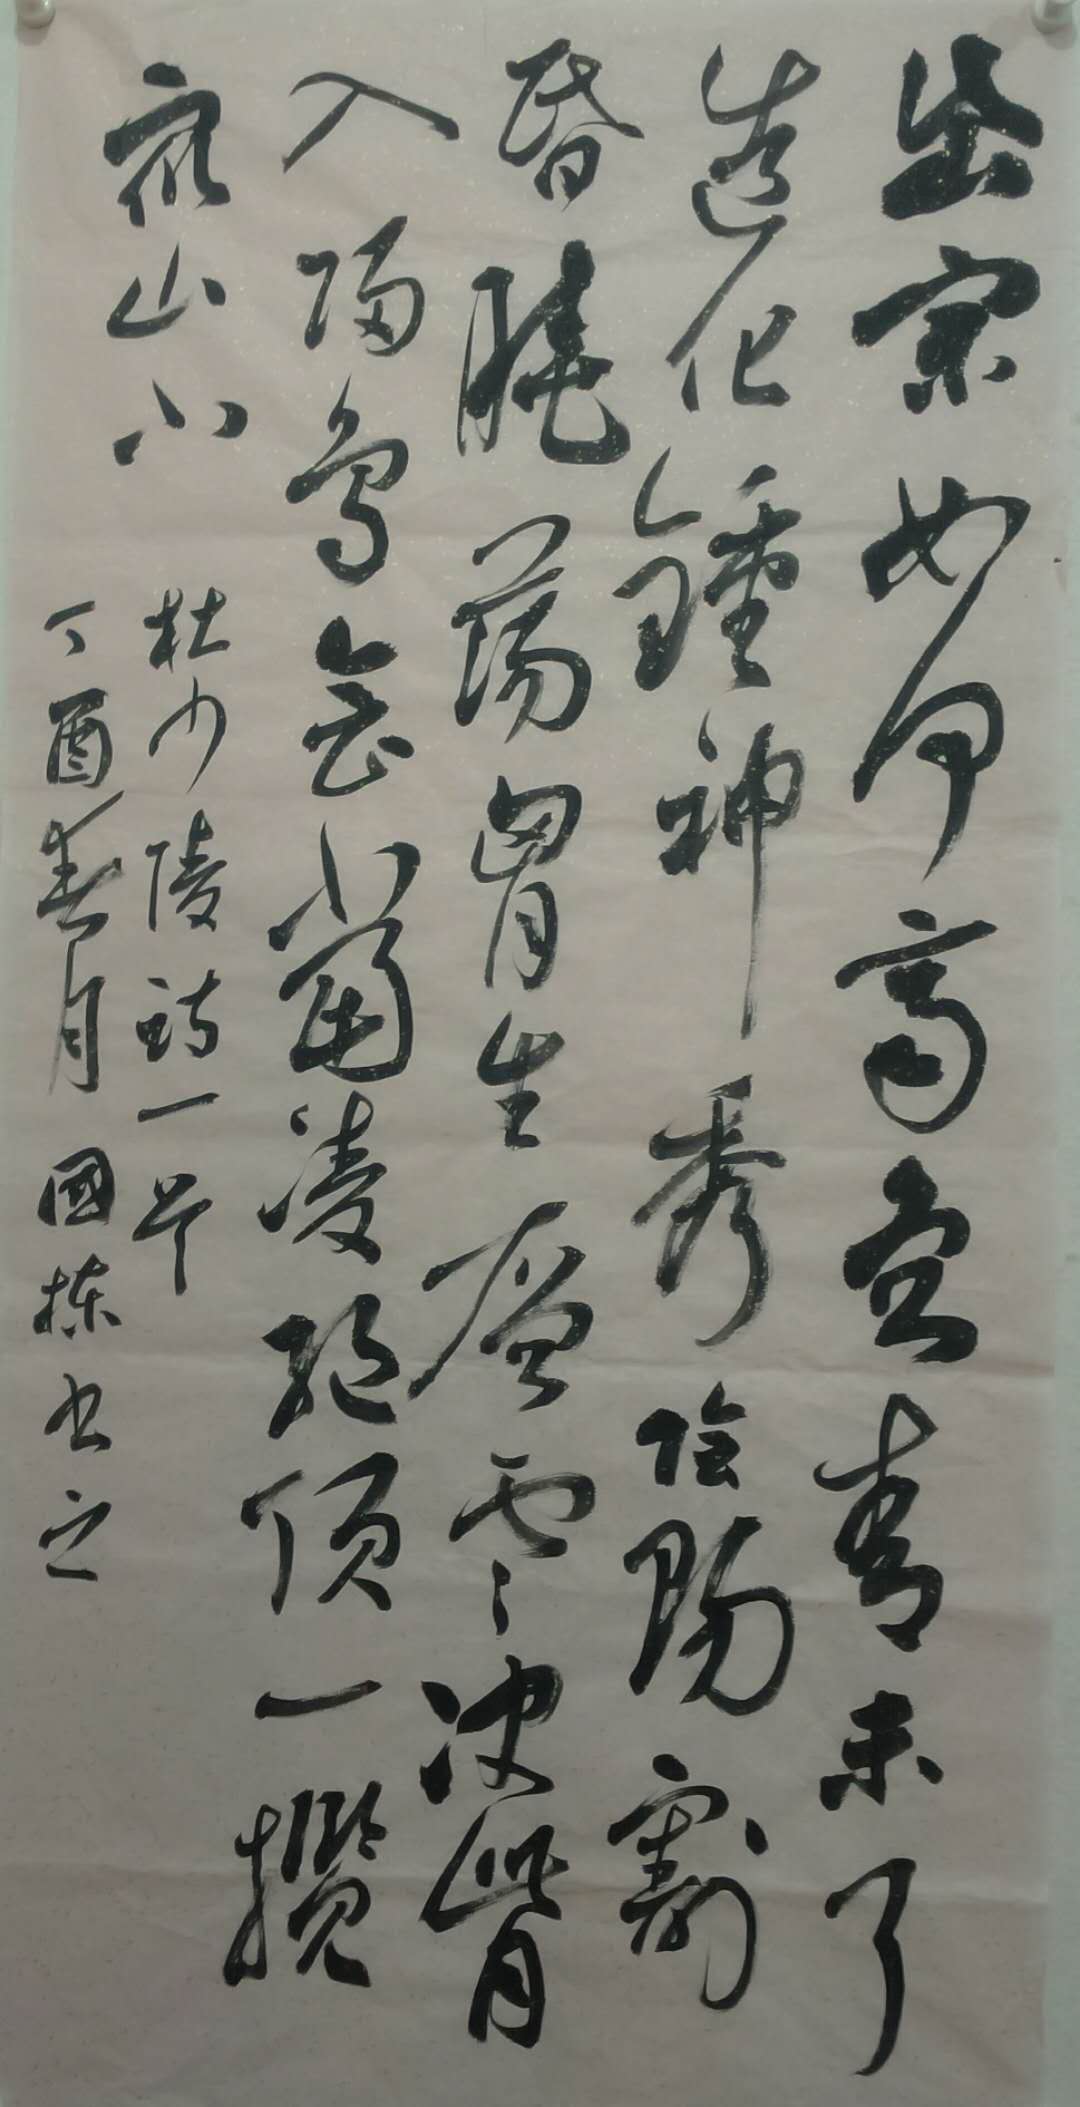 岱宗如何齊魯青未了
造化鍾神秀陰陽割
昏曉蕩胷生層雲决眥
入歸鳥會當凌絕頂一攬
衆山小
杜少陵詩一首
丁酉春月 國棟书之